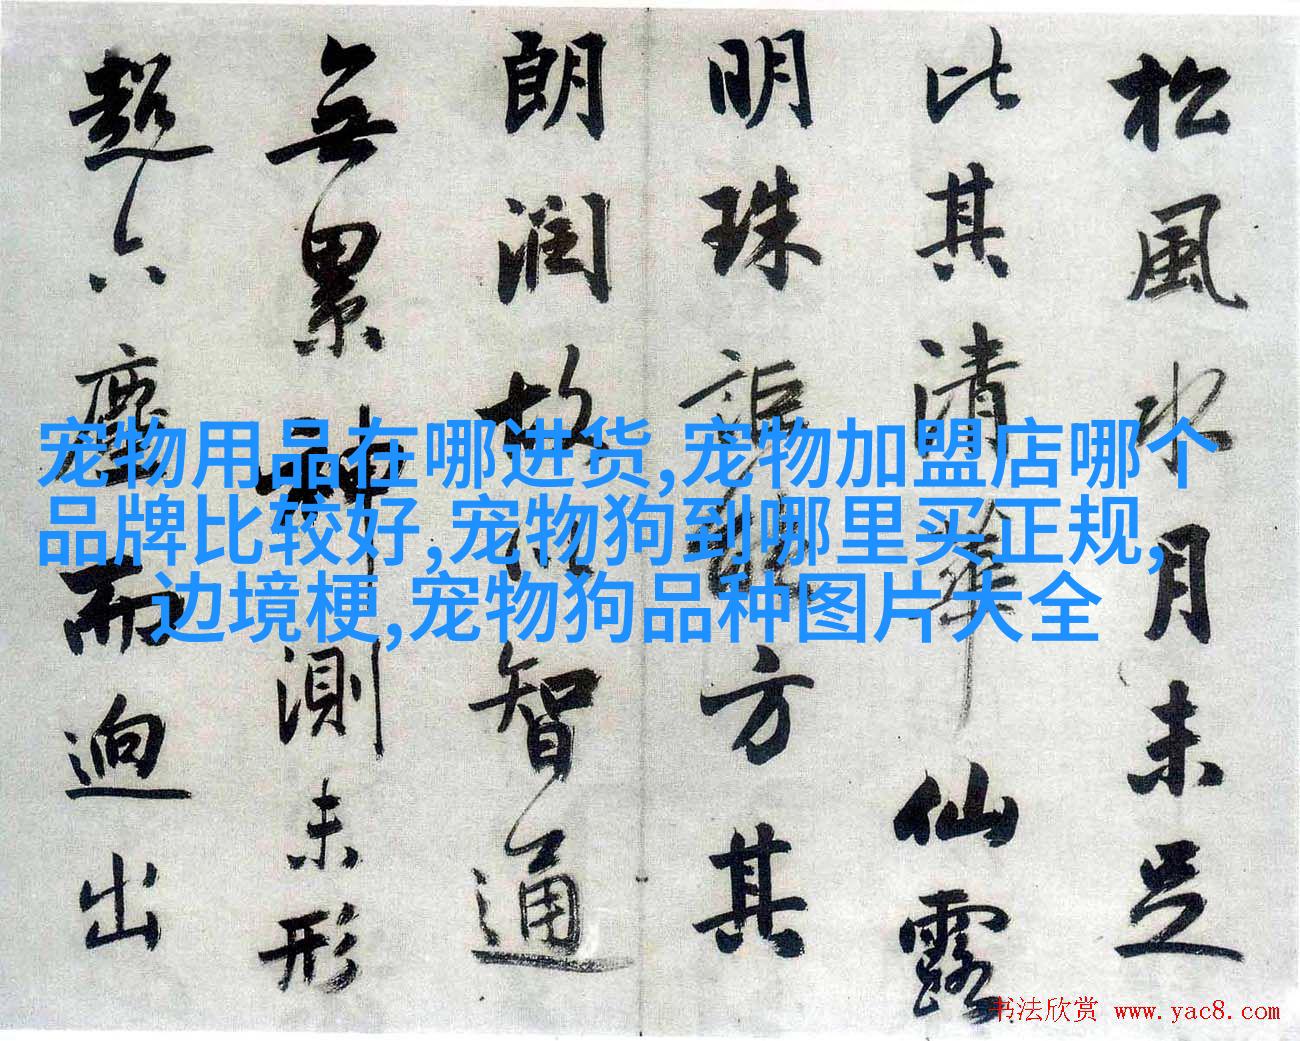 松風水月未足
比其清華仙露
明珠詎能方其
朗潤故以智通
無累神測未形
超六塵而迥出
宠物用品在哪进货,宠物加盟店哪个
品牌比较好,宠物狗到哪里买正规,
边境梗,宠物狗品种图片大全
书法欣赏 www.yac8.com